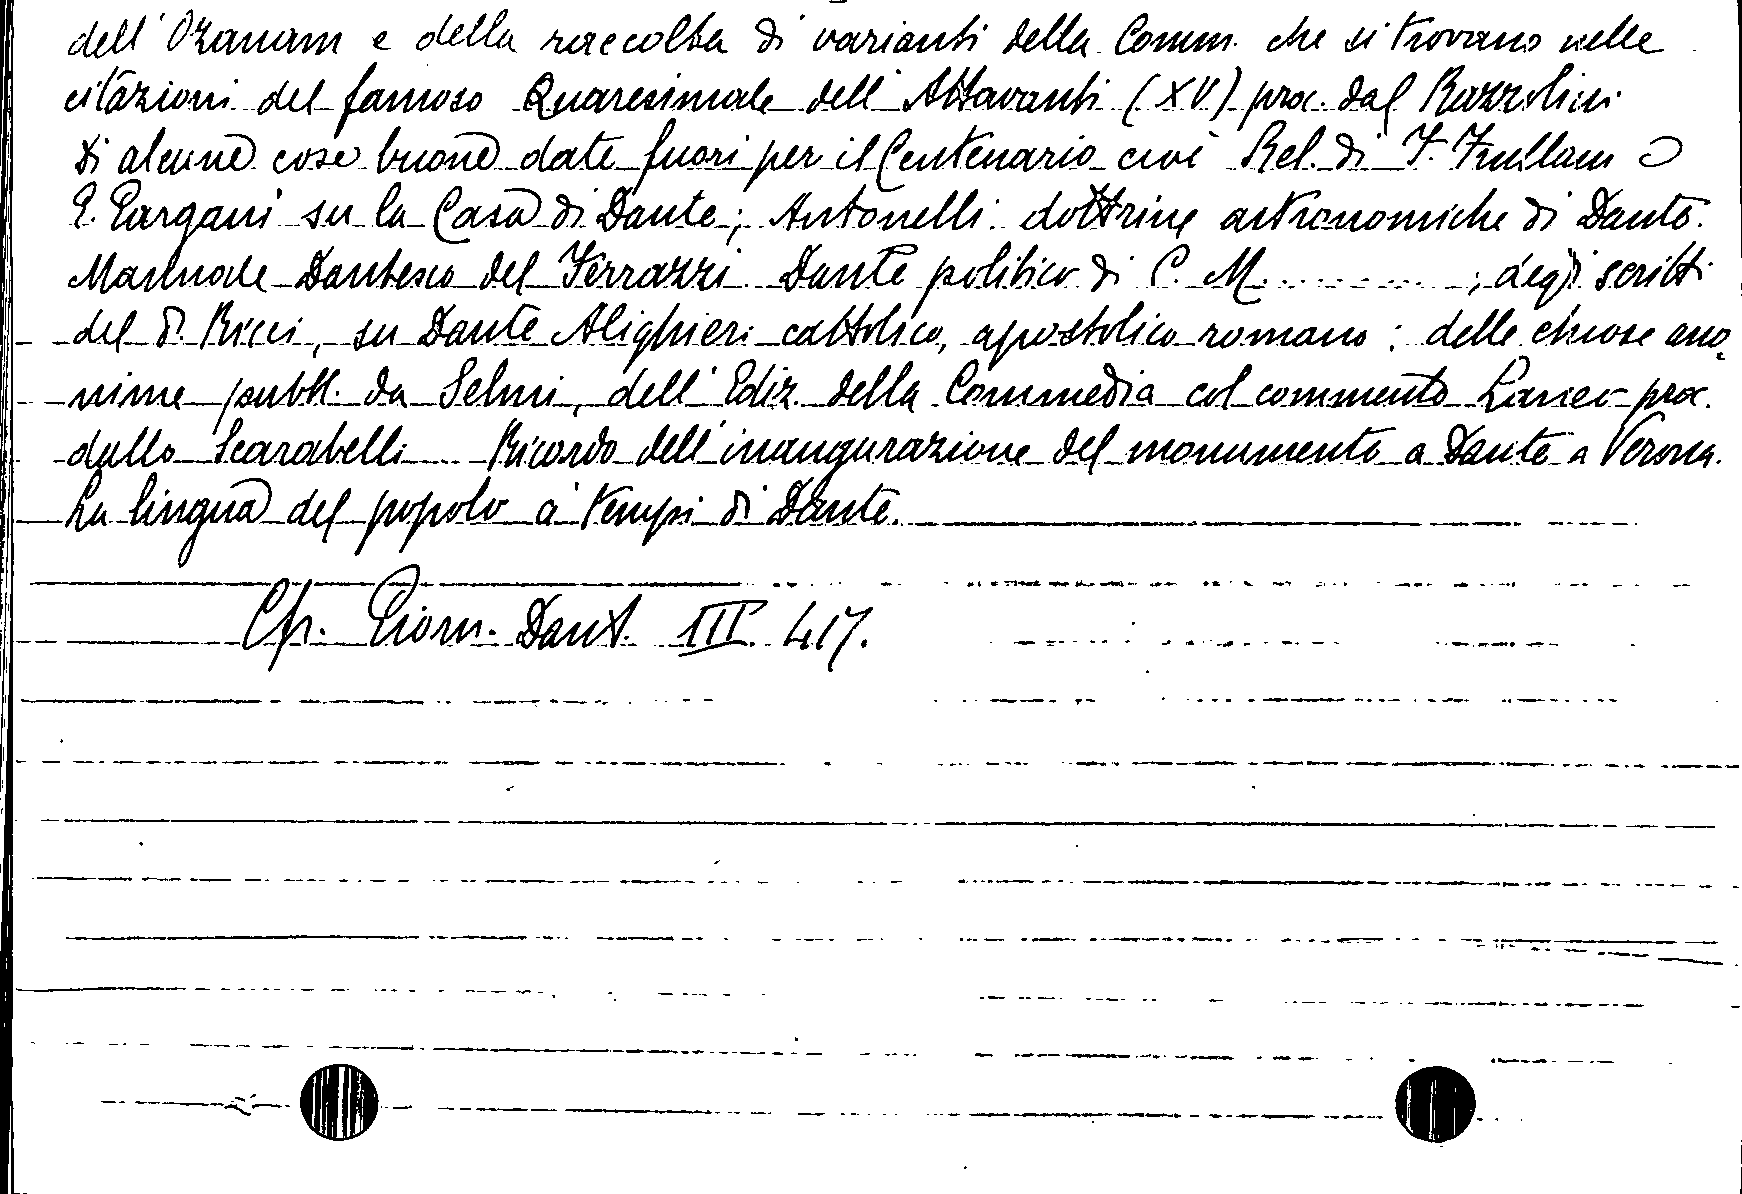 dell'Ozanam e della raccolta di varianti della Comm. che si trovano nelle
citazioni del famoso Quaresimale dell'Attavanti (XV) proc. dal Razzolini
di alcune cose buone date fuori per il Centenario cioè Rel. di F. Frullani e
G. Gargani su la Casa di Dante; Antonelli dottrine astronomiche di Dante.
Manuale Dantesco del Ferrazzi. Dante politico di C. M. .......... ; degli scritti
del d. Ricci, su Dante Alighieri cattolico, apostolico romano: delle chiose ano
nime pubbl. da Selmi, dell'Ediz. della Commedia col commento Laneo proc.
dallo Scarabelli. Ricordo dell'inaugurazione del monumento a Dante a Verona.
La lingua del popolo a' tempi di Dante.
Cfr. Giorn. Dant. III 417.